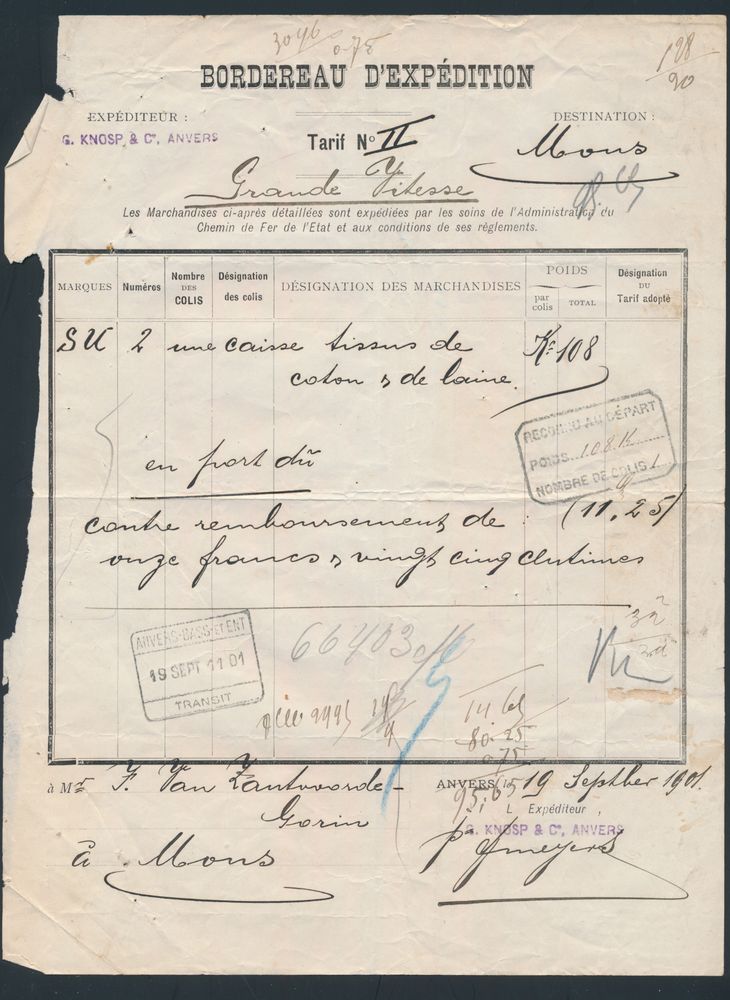 3096
0.75
128
20
BORDEREAU D'EXPÉDITION
EXPÉDITEUR :
G. KNOSP & Cº, ANVERS
Tarif Nº II
DESTINATION :
Mons
Grande Vitesse
Les Marchandises ci-après détaillées sont expédiées par les soins de l'Administration du
Chemin de Fer de l'Etat et aux conditions de ses règlements.
MARQUES Numéros Nombre DES COLIS Désignation des colis DÉSIGNATION DES MARCHANDISES POIDS par colis TOTAL Désignation DU Tarif adopté
SU 2 une caisse tissus de Kº 108
coton & de laine
RECONNU AU DÉPART
POIDS... 108 K
NOMBRE DE COLIS 1
en port dû
contre remboursement de : (11,25)
onze francs & vingt cinq centimes
ANVERS-BASS-ET ENT
19 SEPT 11 01
TRANSIT
14.65
80.25
0.75
95.65
à Mr F. Van Zantvoorde-
Gorin
à Mons
ANVERS, le 19 Septber 1901.
L Expéditeur,
G. KNOSP & Cº, ANVERS